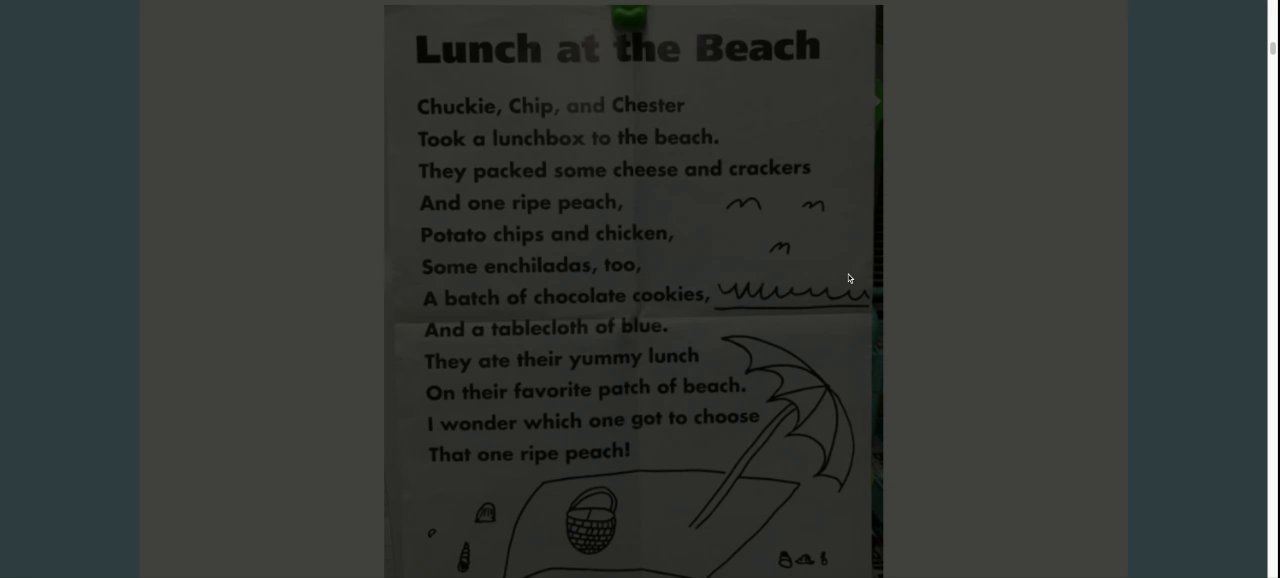 Lunch at the Beach
Chuckie, Chip, and Chester
Took a lunchbox to the beach.
They packed some cheese and crackers
And one ripe peach,
Potato chips and chicken,
Some enchiladas, too,
A batch of chocolate cookies,
And a tablecloth of blue.
They ate their yummy lunch
On their favorite patch of beach.
I wonder which one got to choose
That one ripe peach!